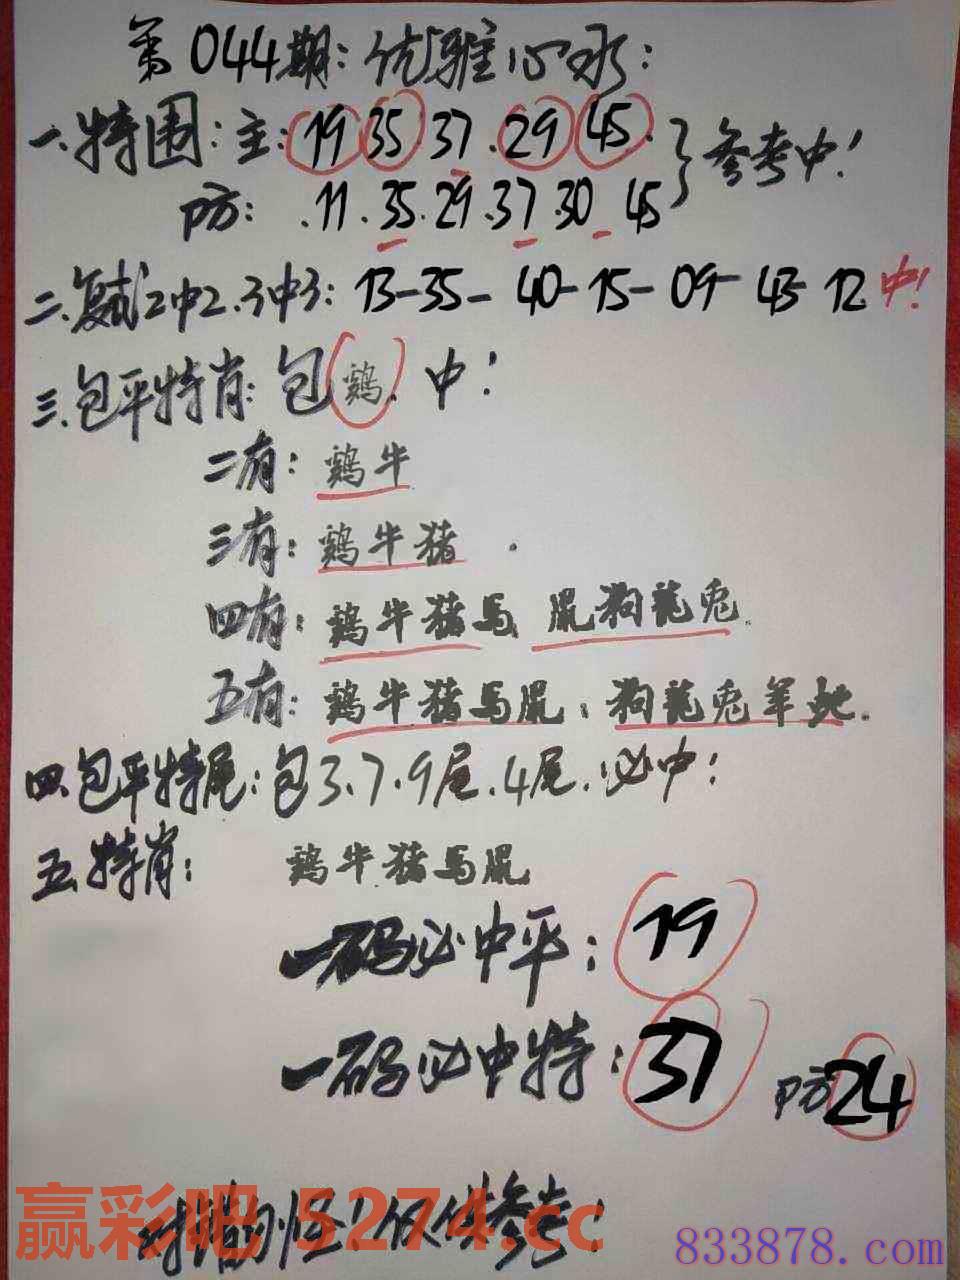 第044期:优雅心水:
一.特围:主:19 35 37.29 45.
防:.11.35.29.37.30 45
参考中!
二.复式2中2.3中3:13-35-40-15-09-43-12 中!
三.包平特肖:包鷄.中!
二有:鷄牛
三有:鷄牛猪.
四有:鷄牛猪馬 鼠狗龍兎.
五有:鷄牛猪馬鼠:狗龍兎羊蛇.
四.包平特尾:包3.7.9尾.4尾.必中!
五.特肖:鷄牛.猪馬鼠
一码必中平:19
一码必中特:37 防24
对错勿怪!仅供参考!
赢彩吧 5274.cc
833878.com